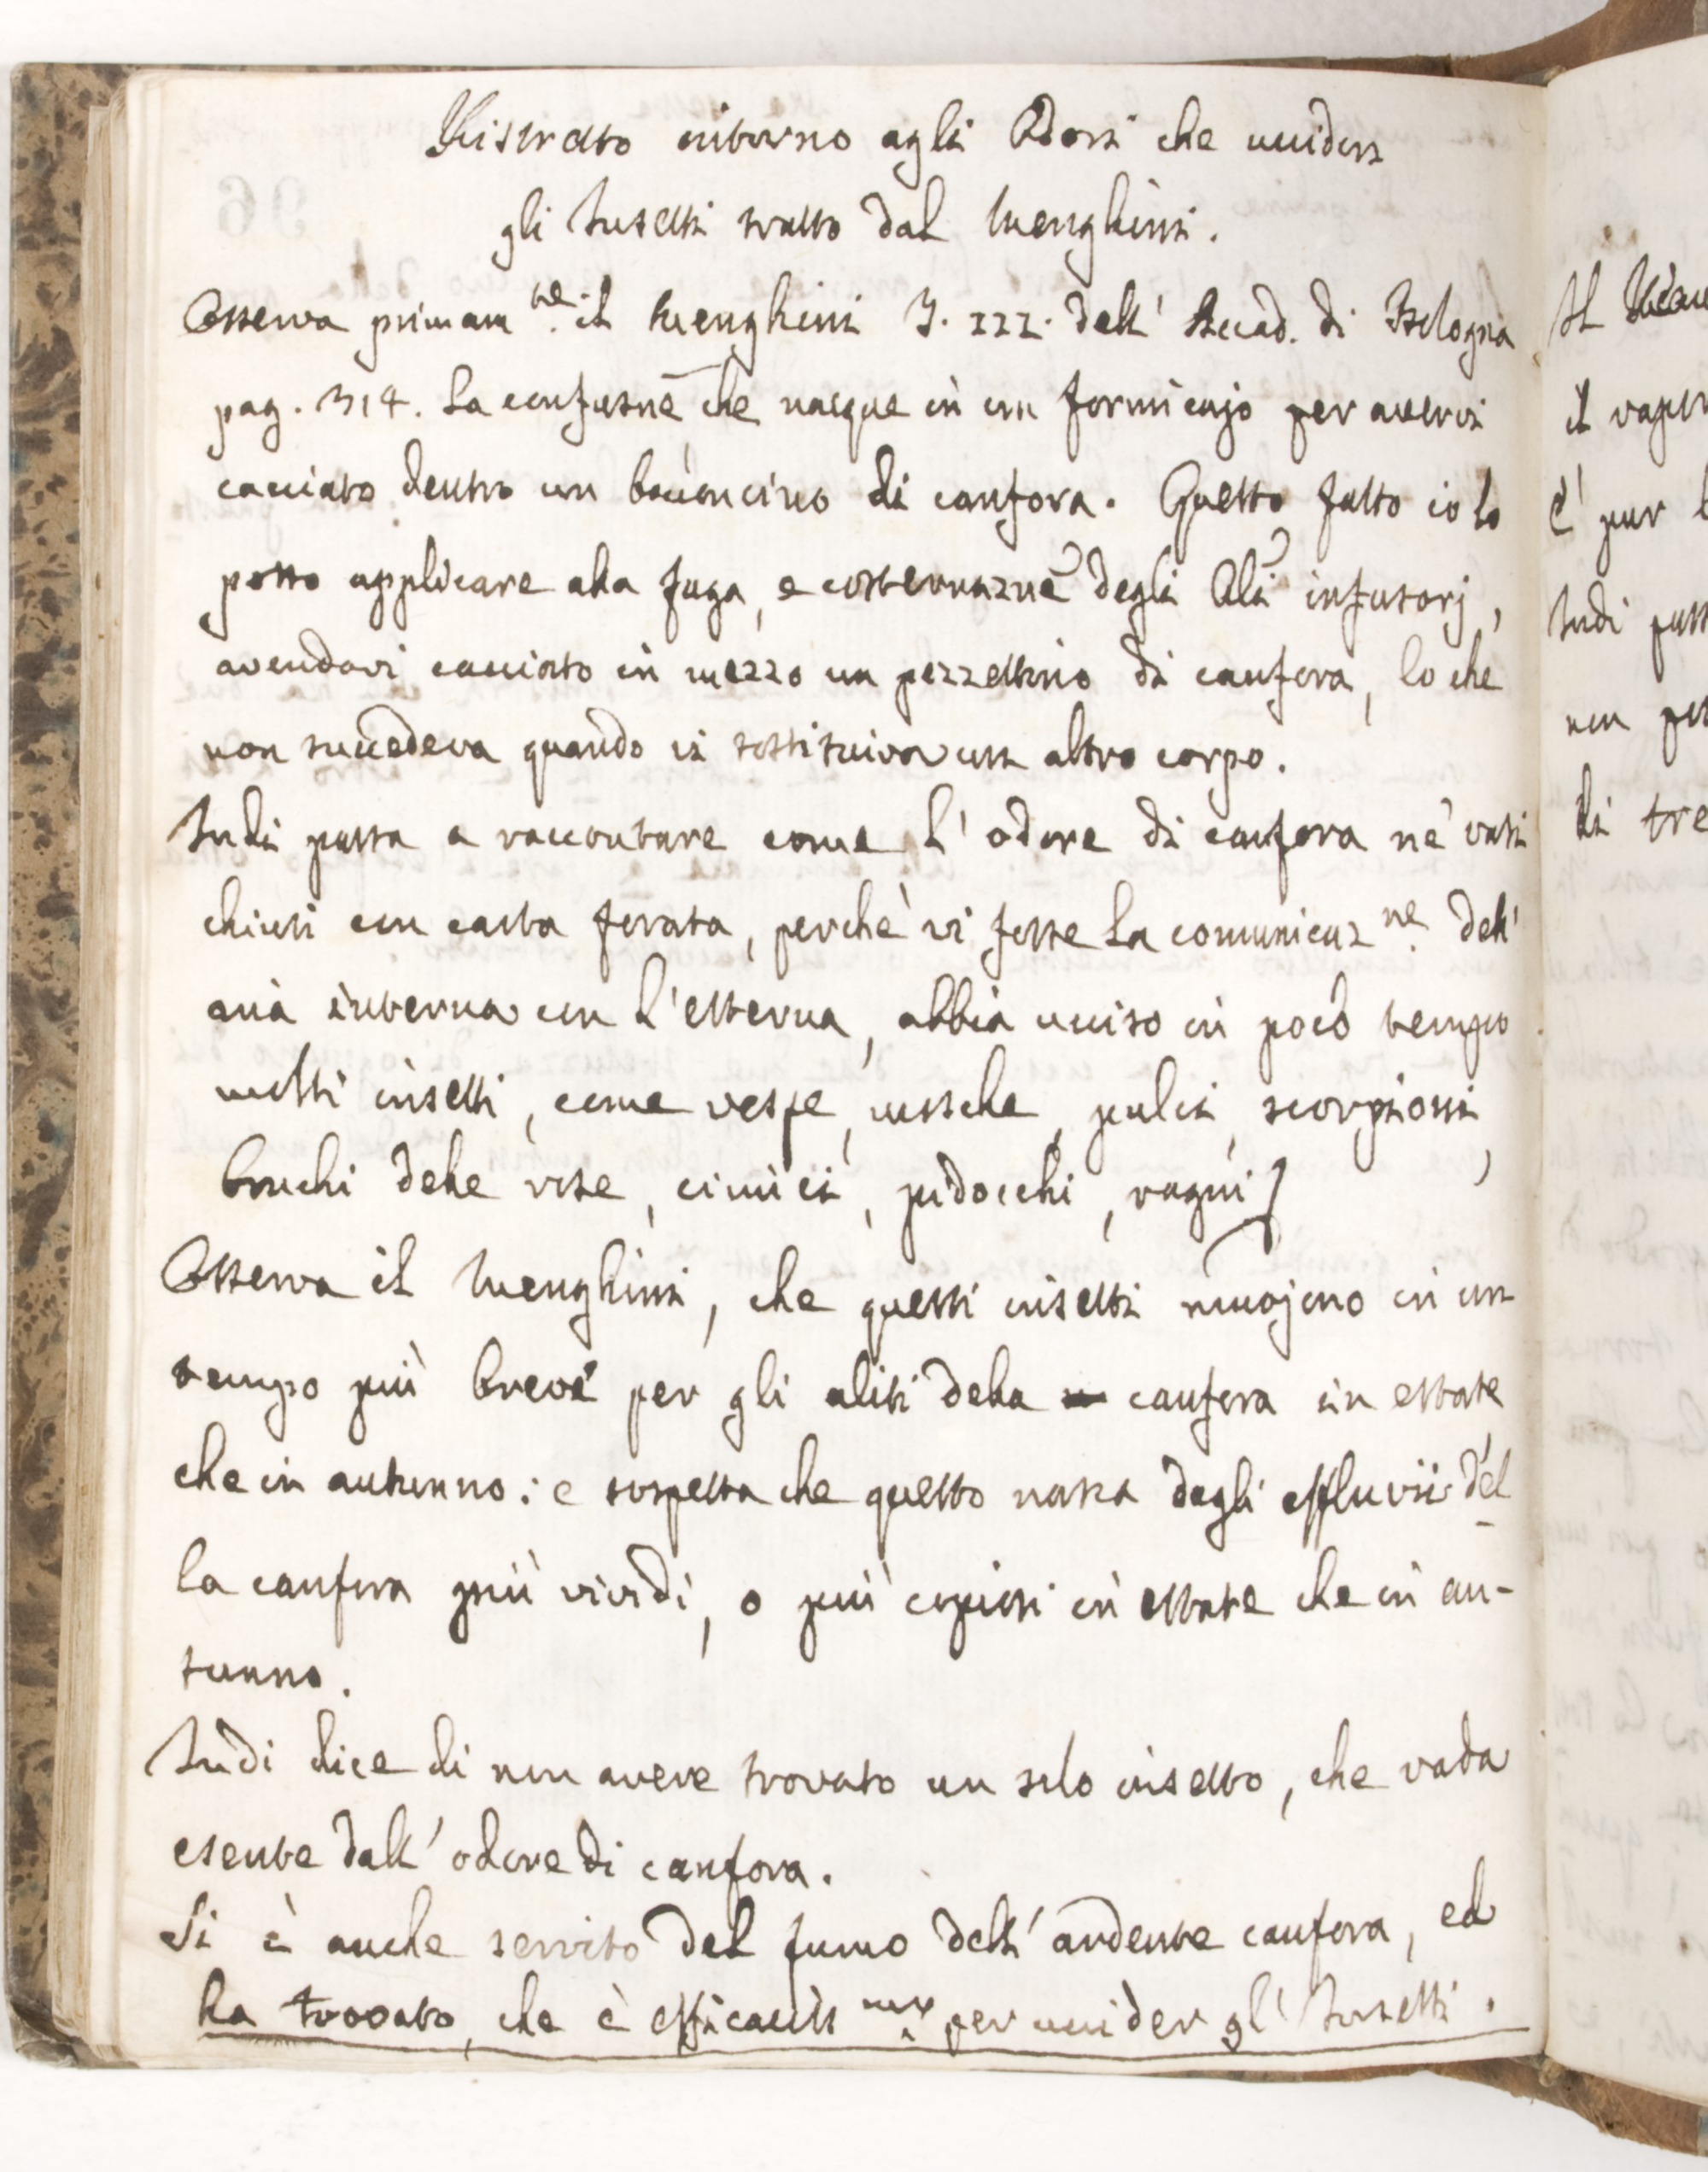 Ristretto intorno agli Odori che uccidon
gli Insetti tratto dal Menghini.
Osserva primam.te il Menghini T. III. dell' Accad. di Bologna
pag. 314. la confusne che nacque in un formicajo per avervi
cacciato dentro un bocconcino di canfora. Questo fatto io lo
posso applicare alla fuga, e costernazne degli Ali infusorj,
avendovi cacciato in mezzo un pezzettino di canfora, lo che
non succedeva quando vi sostituiva un altro corpo.
Indi passa a raccontare come l' odore di canfora ne' vasi
chiusi con carta forata, perchè vi fosse la comunicaz.ne dell'
aria interna con l' esterna, abbia ucciso in poco tempo
molti insetti, come vespe, mosche, pulci, scorpioni,
bruchi delle rose, cimici, pidocchi, ragni
Osserva il Menghini, che questi insetti muojono in un
tempo più breve per gli aliti della canfora in estate
che in autunno: e sospetta che questo nasca dagli effluvii del
la canfora più vividi, o più copiosi in estate che in au-
tunno.
Indi dice di non avere trovato un solo insetto, che vada
esente dall' odore di canfora.
Si è anche servito del fumo dell' ardente canfora, ed
ha trovato, che è efficaciss.mo per uccider gl' Insetti.
Il
il vapor
è pur
Indi pass
non
di tre
96